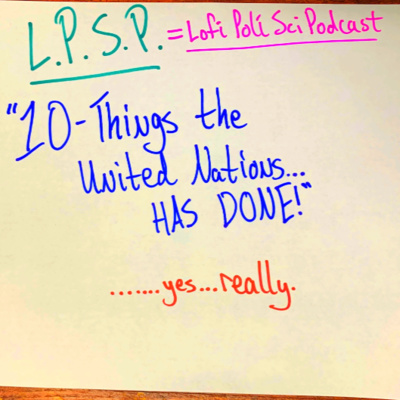 L.P.S.P. = Lofi Poli Sci Podcast
"10-Things the
United Nations...
HAS DONE!"
.......yes...really.